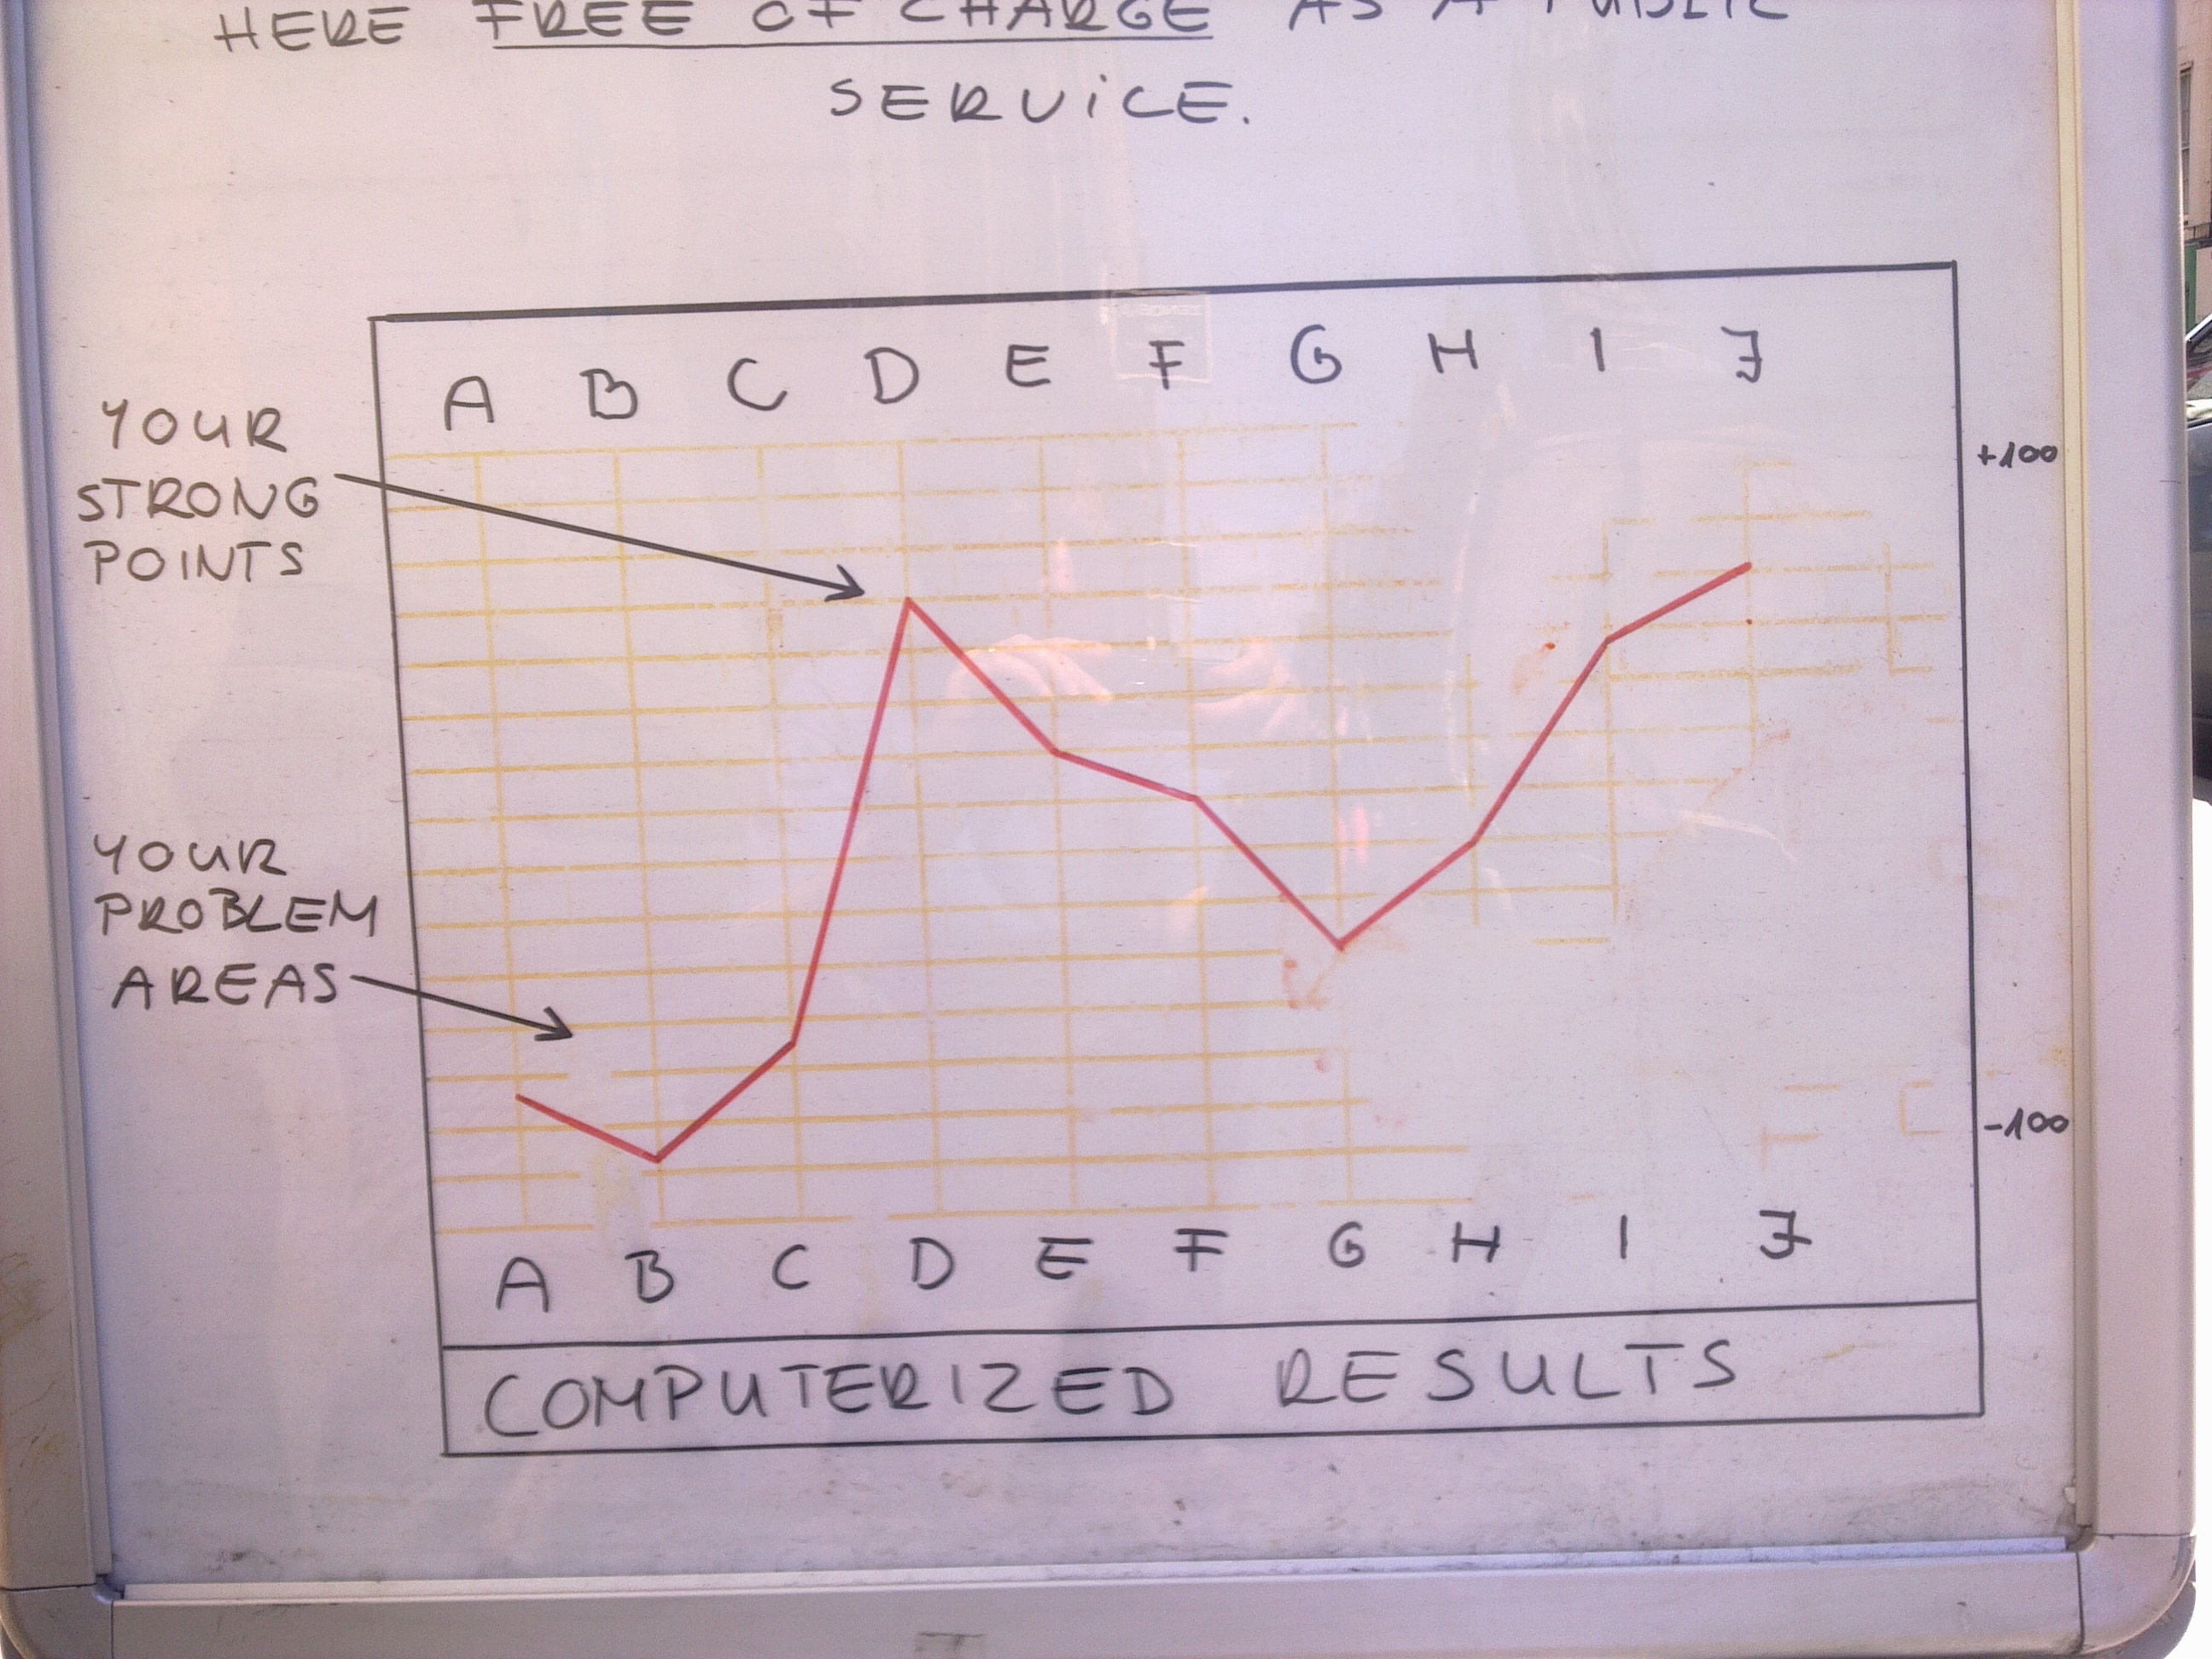 HERE FREE OF CHARGE AS A PUBLIC
SERViCE.
A B C D E F G H I J
YOUR
STRONG
POINTS
+100
YOUR
PROBLEM
AREAS
-100
A B C D E F G H I J
COMPUTERIZED RESULTS